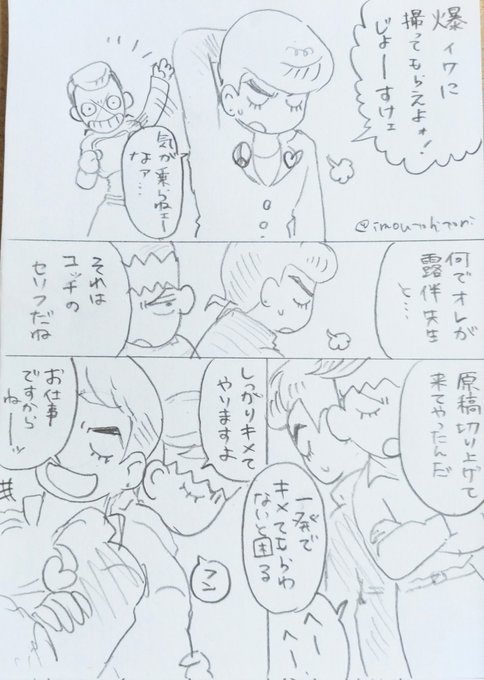 爆イワに
撮ってもらえよォ!
じょーすけェ
気が乗らねェー
なァ…
@imoutohitori
何でオレが
露伴先生
と…
それは
コッチの
セリフだね
原稿切り上げて
来てやったんだ
一発で
キメてもらわ
ないと困る
へー
へー
しっかりキメて
やりますよ
フン
お仕事
ですから
ねーッ